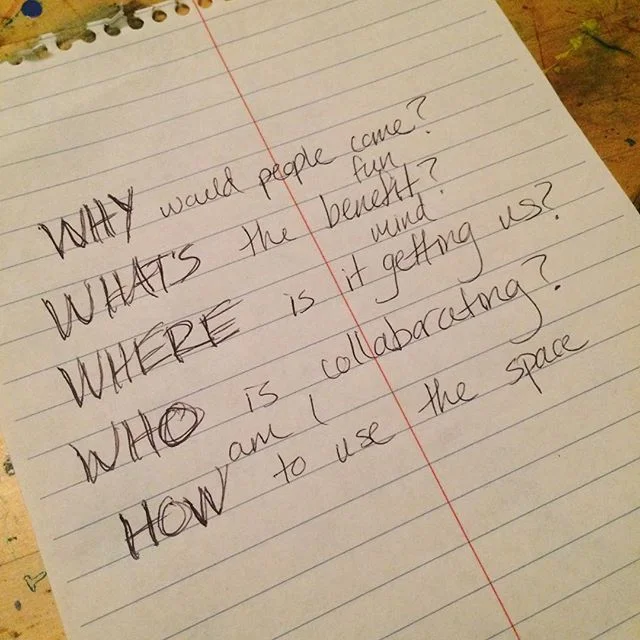 WHY would people come?
fun
WHAT'S the benefit?
mind
WHERE is it getting us?
WHO is collaborating?
am I
HOW to use the space